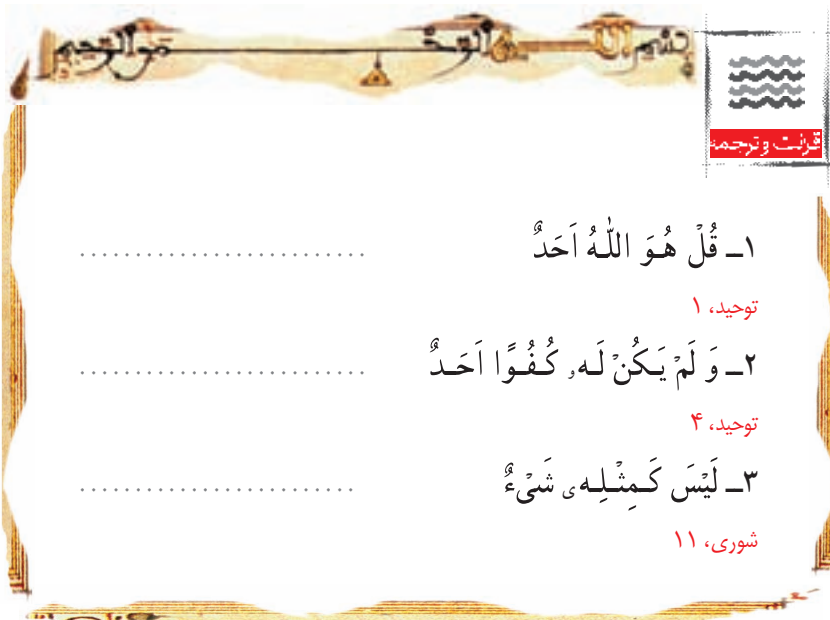 بسم الله الرحمن الرحیم
قرائت و ترجمه
۱ــ قُلْ هُـوَ اللّٰـهُ اَحَدٌ ..........................
توحید، ۱
۲ــ وَ لَمْ یَـکُنْ لَـهۥ کُـفُـوًا اَحَـدٌ ..........................
توحید، ۴
۳ــ لَیْسَ کَـمِثْـلِـهۦ شَیْءٌ .........................
شوری، ۱۱